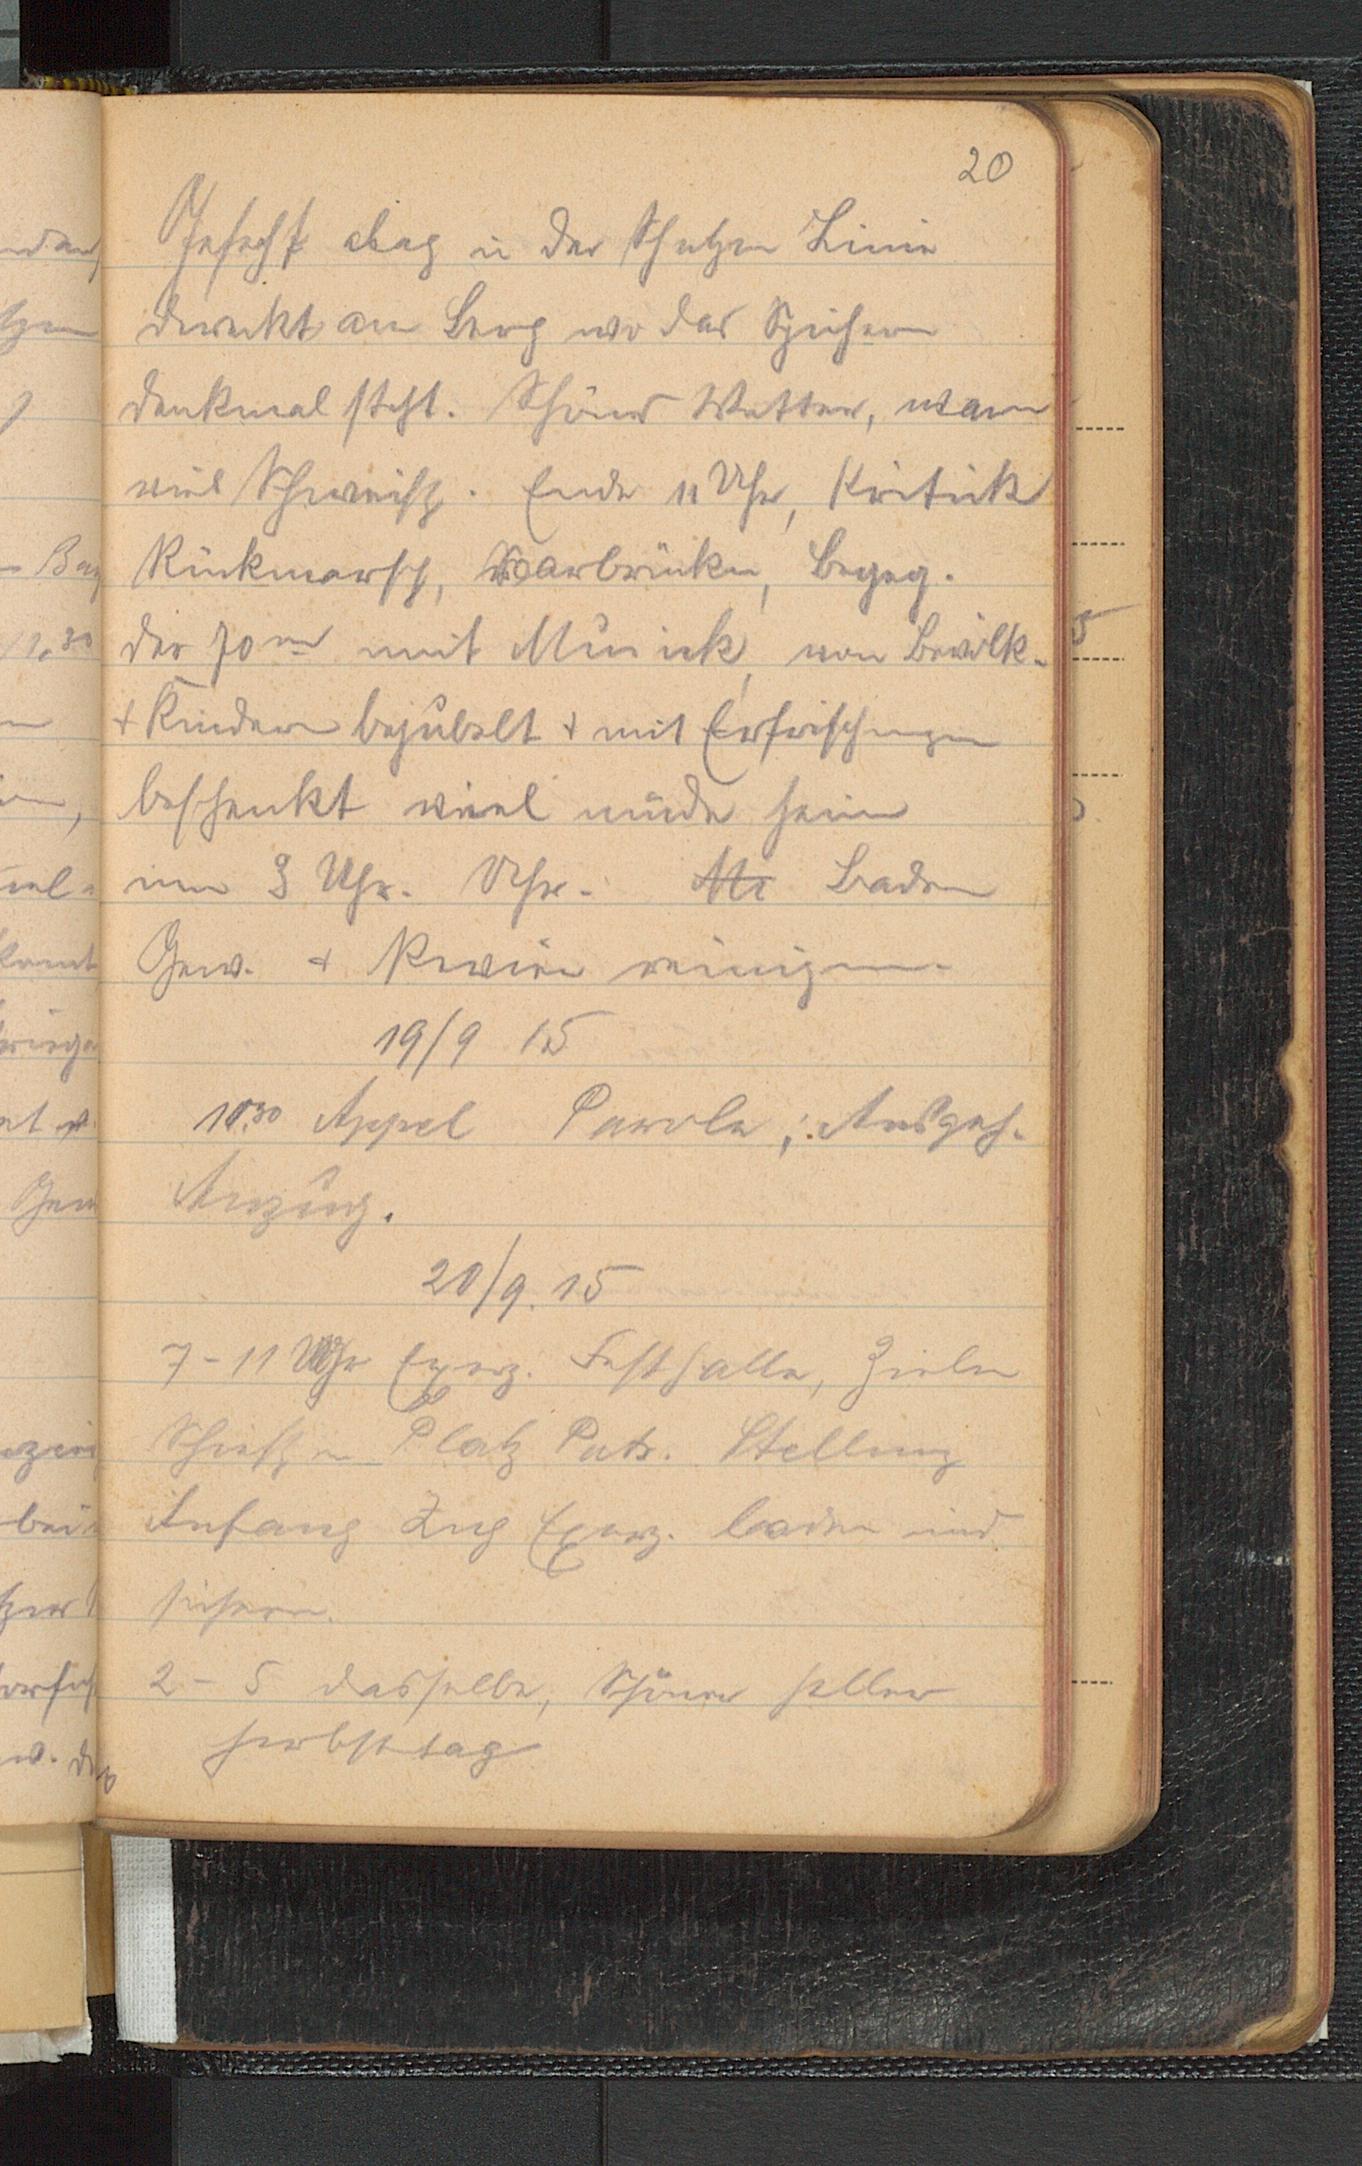 20
Gefecht lag in der Schutzen Linie
direckt am Berg wo das Spichern
denkmal steht. Schönes Wetter, warm
viel Schweiß. Ende 11 Uhr, Kritick
Rückmarsch, Saarbrücken, Begeg.
der 70er mit Musick, von Bevölk.
+ Kindern bejubelt + mit Erfrischungen
beschenkt viel müde heim
um 3 Uhr. Uhr. Baden
Gew. + Revier reinigen.
19/9 15
10.30 Appel Parole; Ausgeh.
Anzug.
20/9. 15
7-11 Uhr Exerz. Festhalle, Zielen
Schießen Platz Patr. Stellung
Anfang Zug Exerz. laden und
sichern.
2-5 dasselbe, Schöner heller
herbsttag